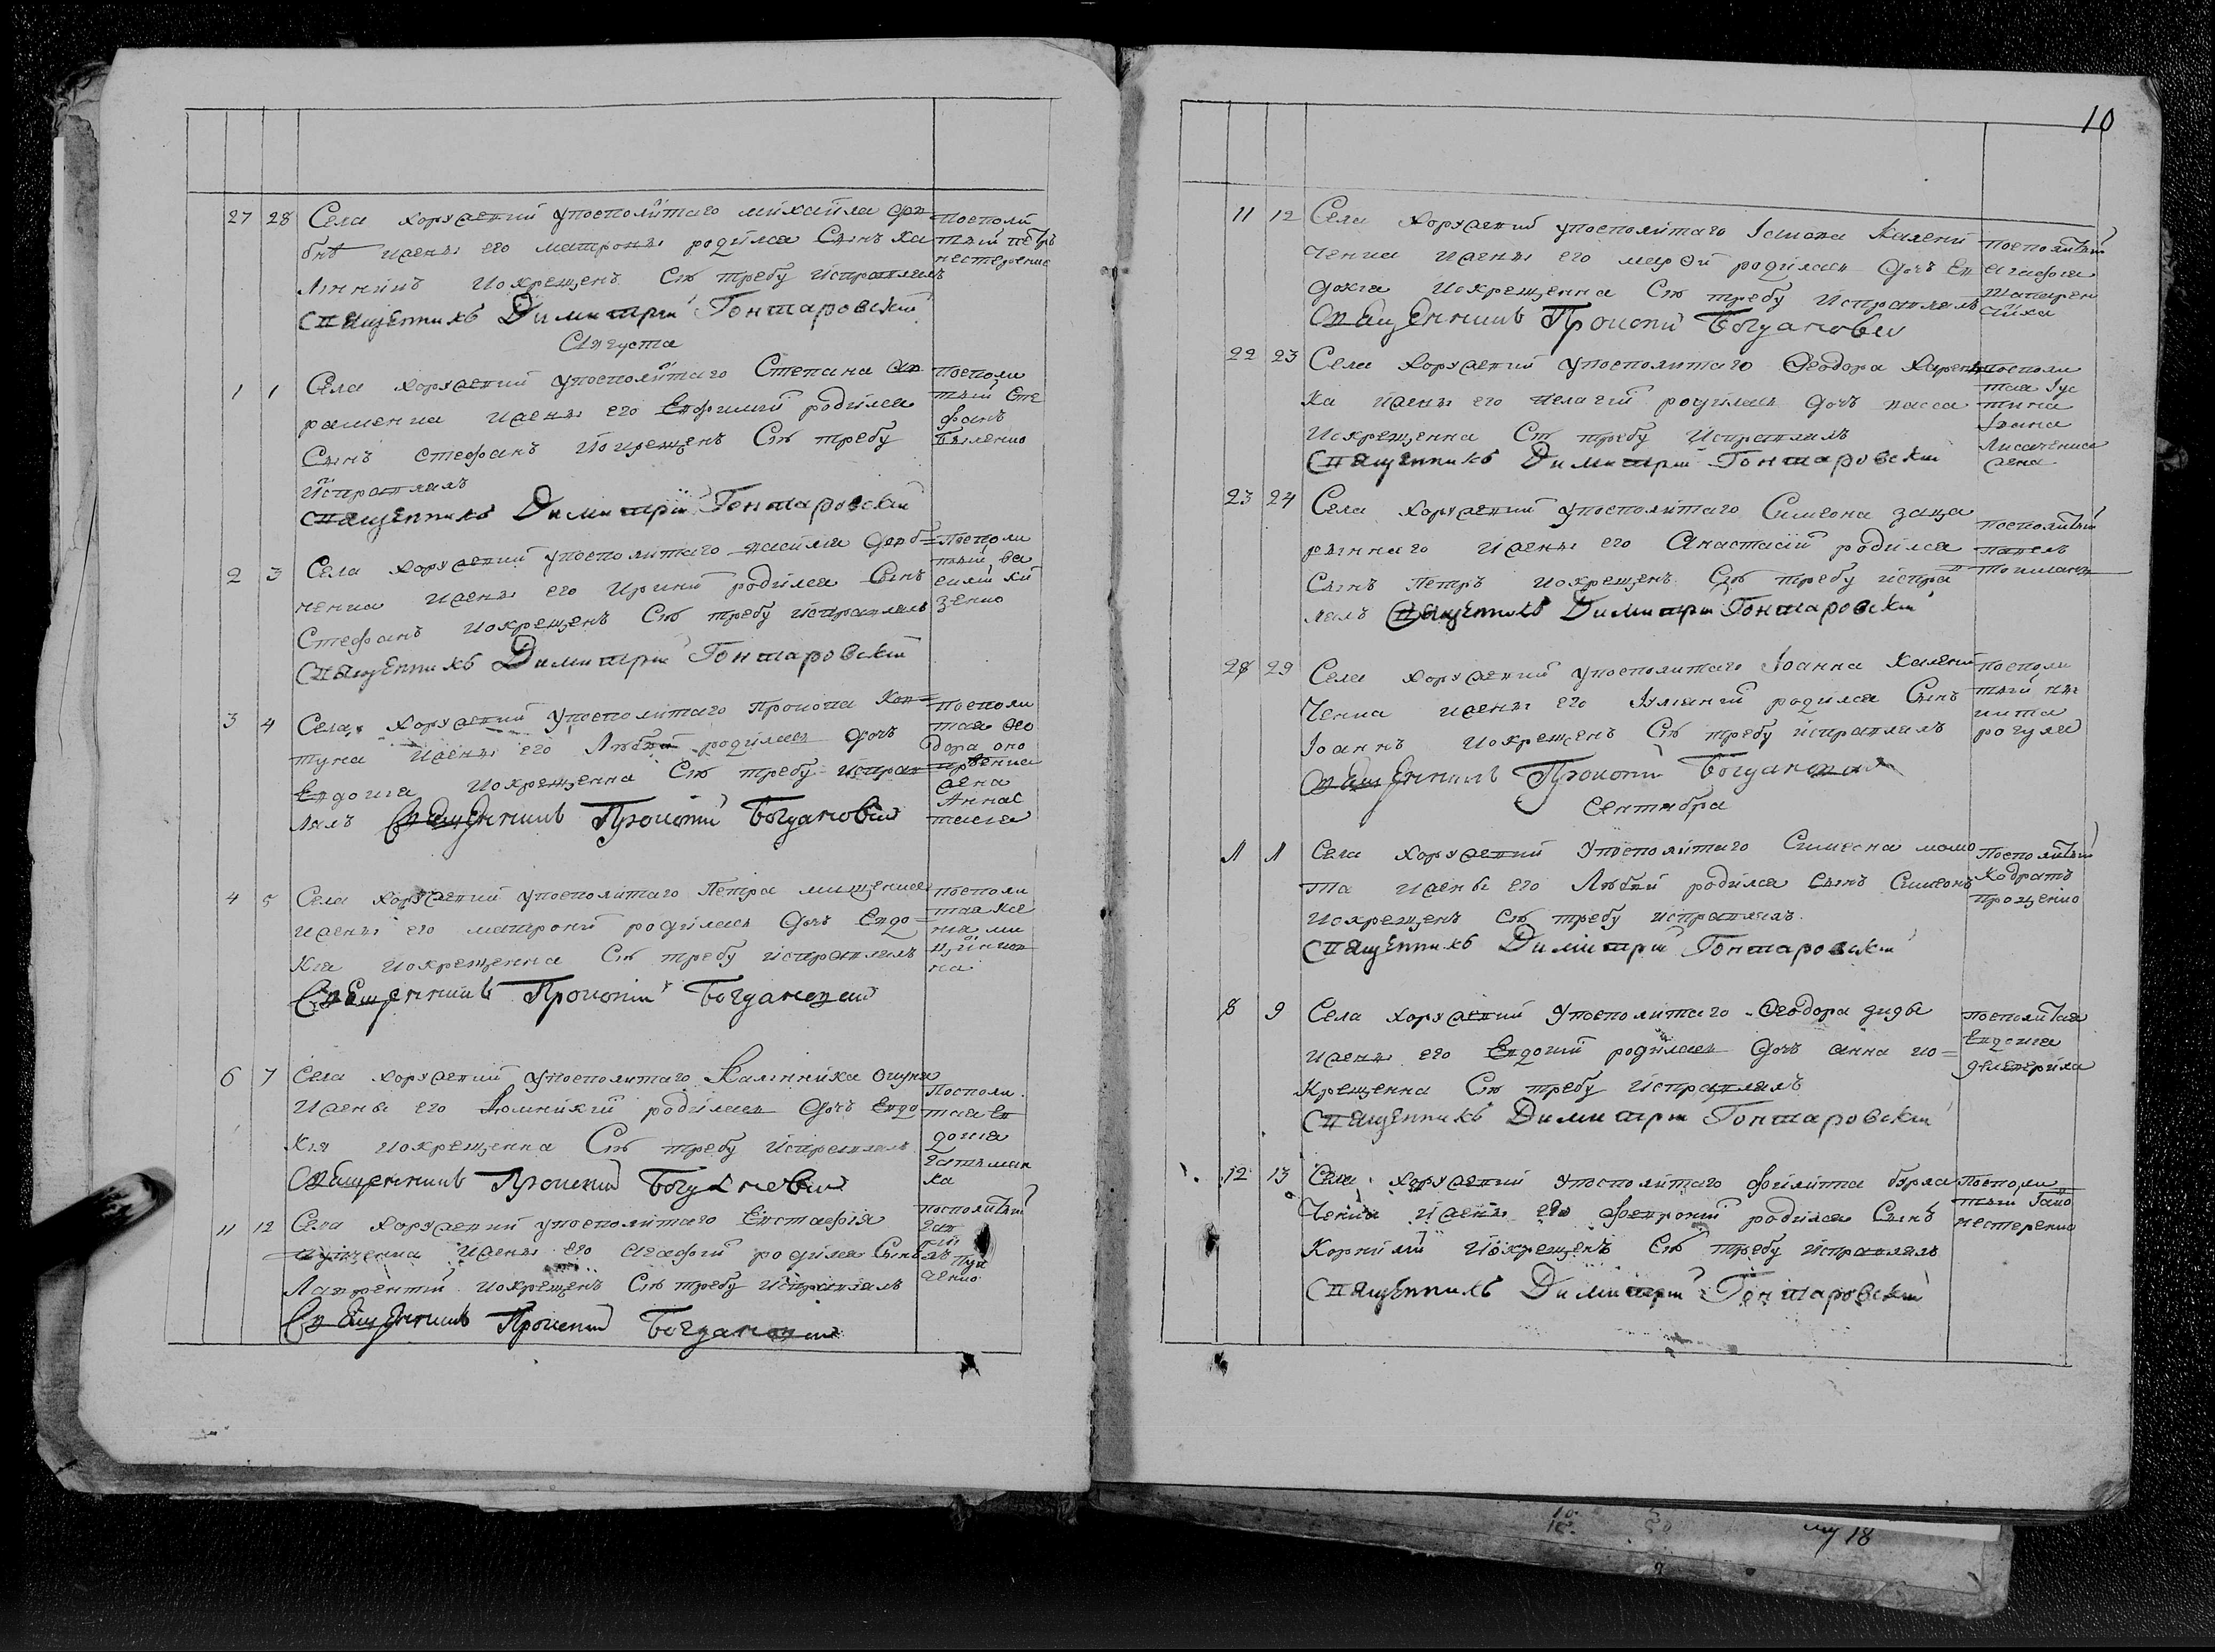 27 28 Села хоружевки упосполитаго михайла
жены его матроны родился Сынъ ка
линникъ иокрещенъ Сію требу исправлялъ
Священникъ Димитрій Гонтаровскій
посполи
тый петръ
нестеренко
Августа
1 1 Села хоружевки упосполитаго Степана ав
раменка жены его Евфимій родился
Сынъ стефанъ иокрещенъ Сію требу
исправлялъ
Священникъ Димитрій Гонтаровскій
посполи
тый Сте
фанъ
2 3 Села хоружевки упосполитаго василя
ченка жены его Ирины родился Сынъ
Стефанъ иокрещенъ Сію требу исправлялъ
Священникъ Димитрій Гонтаровскій
посполи
тый ва
силій ки
зенко
3 4 Села хоружевки упосполитаго прокопа ков
туна жены его Любви родилась дочь
Евдокиа иокрещенна Сію требу исправ
лялъ Священникъ Прокопій Богдановичъ
посполи
тая Ѳео
дора оно
жена
4 5 Села хоружевки упосполитаго Петра мищенка
жены его матроны родилась дочь Евдо
киа иокрещенна Сію требу исправлялъ
Священникъ Прокопій Богдановичъ
посполи
тая
на
6 7 Села хоружевки упосполитаго Калинника
жены его Домникій родилась дочь Евдо
кія иокрещенна Сію требу исправлялъ
Священникъ Прокопій Богдановичъ
Посполи
тая Ев
докиа
ка
11 12 Села хоружевки упосполитаго Евстафія
жены его агафіи родился Сынъ
Лаврентій иокрещенъ Сію требу исправлялъ
Священникъ Прокопій Богдановичъ
посполитый
ченко
10
11 12 Села хоружевки упосполитаго Іакова Калени
ченка жены его марѳи родилась дочь Ев
докиа иокрещенна Сію требу исправлялъ
Священникъ Прокопій Богдановичъ
посполитый
агафиа
22 23 Села хоружевки упосполитаго Ѳеодора Харен
ка жены его пелагіи родилась дочь васса
иокрещенна Сію требу исправлялъ
Священникъ Димитрій Гонтаровскій
посполи
тая Іус
тина
Лисаченка
жена
23 24 Села хоружевки упосполитаго Симеона заца
рыннаго жены его Анастасіи родился
Сынъ Петръ иокрещенъ Сію требу исправ
лялъ Священникъ Димитрій Гонтаровскій
посполитый
павелъ
28 29 Села хоружевки упосполитаго Іоанна Калени
ченка жены его Іулианіи родился Сынъ
Іоаннъ иокрещенъ Сію требу исправлялъ
Священникъ Прокопій Богдановичъ
посполи
тый ни
кита
рогуля
Сентября
1 1 Села хоружевки упосполитаго Симеона момо
та жены его Любви родился Сынъ Симеонъ
иокрещенъ Сію требу исправлялъ
Священникъ Димитрій Гонтаровскій
Посполитый
Кодратъ
проценко
8 9 Села хоружевки упосполитаго Ѳеодора
жены его Евдокіи родилась дочь анна ио
крещенна Сію требу исправлялъ
Священникъ Димитрій Гонтаровскій
посполитая
Евдокиа
12 13 Села хоружевки упосполитаго филиппа бурла
ченка жены его февроніи родился Сынъ
Корнилій иокрещенъ Сію требу исправлялъ
Священникъ Димитрій Гонтаровскій
Посполи
тый
нестеренко